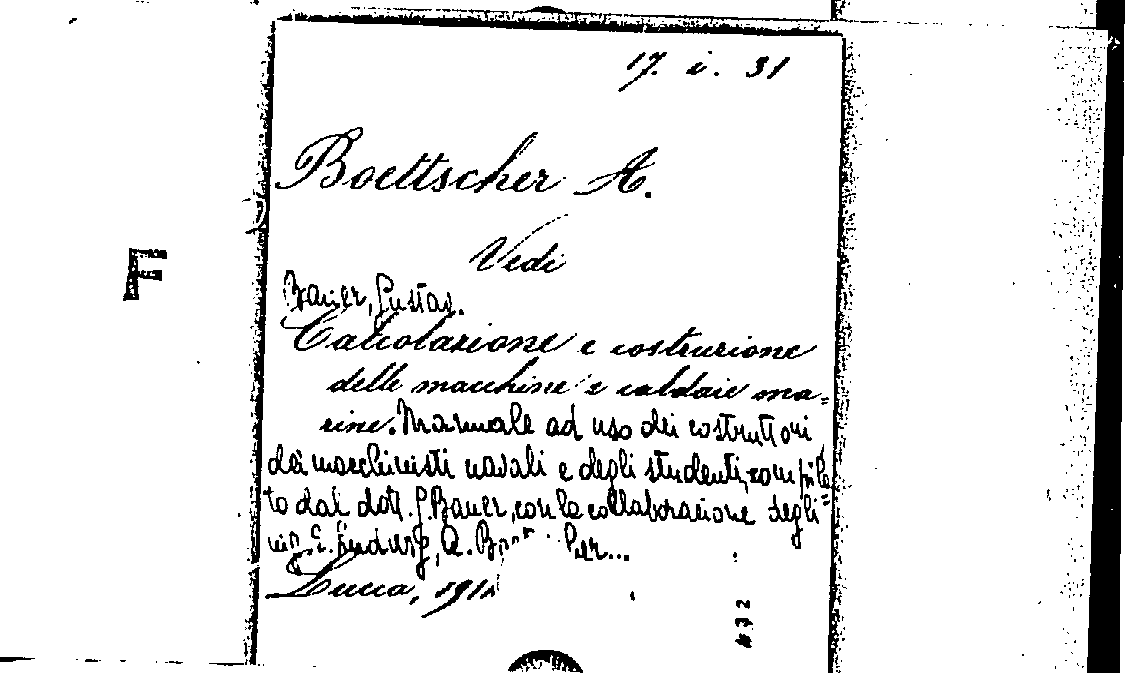 17. i. 31
Boettscher A.
Vedi
F
Bauer, Gustav.
Calcolazione e costruzione
delle macchine e caldaie ma=
rine. Manuale ad uso dei costruttori
dei macchinisti navali e degli studenti, compila=
to dal dott. G. Bauer, con la collaborazione degli
ing. E. Ludwig, A. Boettscher...
Lucca, 191